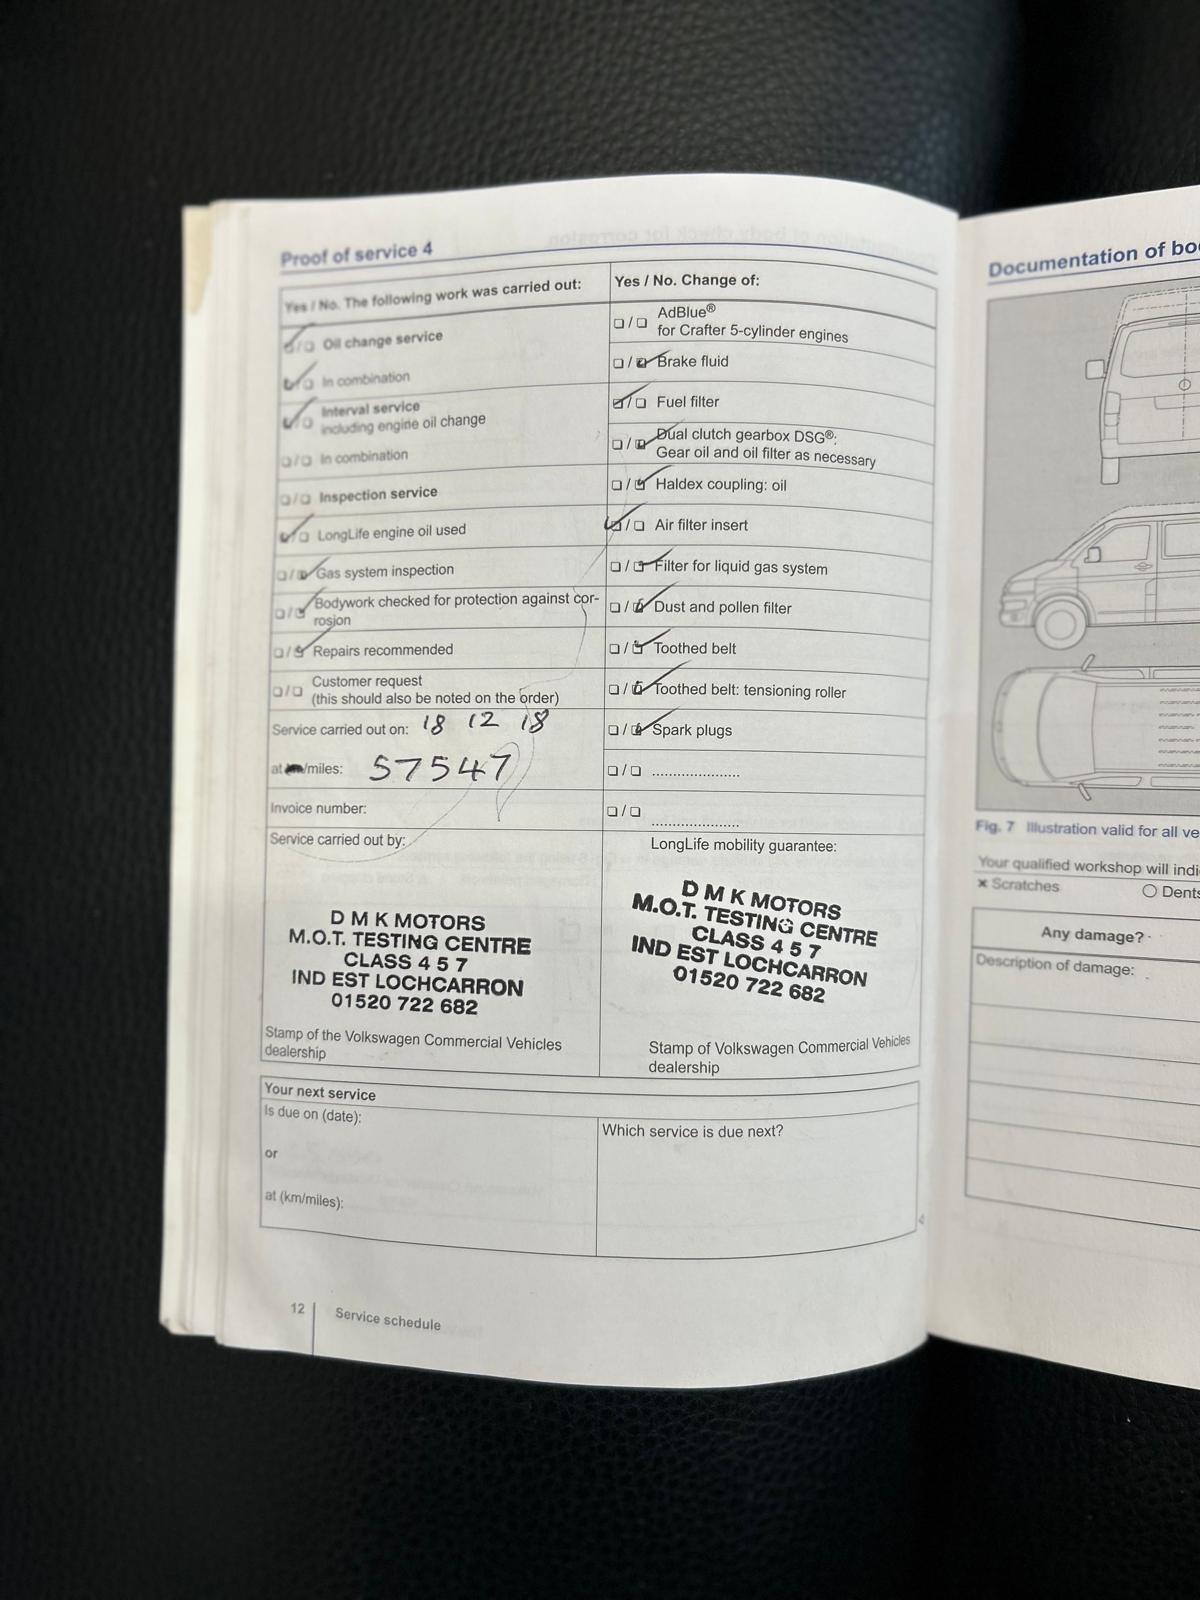 Proof of service 4
Yes / No. The following work was carried out:
Oil change service
In combination
Interval service
including engine oil change
In combination
Inspection service
LongLife engine oil used
Gas system inspection
Bodywork checked for protection against cor-
rosion
Repairs recommended
Customer request
(this should also be noted on the order)
Service carried out on: 18 12 18
at /miles: 57547
Invoice number:
Service carried out by:
D M K MOTORS
M.O.T. TESTING CENTRE
CLASS 4 5 7
IND EST LOCHCARRON
01520 722 682
Stamp of the Volkswagen Commercial Vehicles
dealership
Yes / No. Change of:
AdBlue®
for Crafter 5-cylinder engines
Brake fluid
Fuel filter
Dual clutch gearbox DSG®:
Gear oil and oil filter as necessary
Haldex coupling: oil
Air filter insert
Filter for liquid gas system
Dust and pollen filter
Toothed belt
Toothed belt: tensioning roller
Spark plugs
LongLife mobility guarantee:
D M K MOTORS
M.O.T. TESTING CENTRE
CLASS 4 5 7
IND EST LOCHCARRON
01520 722 682
Stamp of Volkswagen Commercial Vehicles
dealership
Your next service
Is due on (date):
or
at (km/miles):
Which service is due next?
12 Service schedule
Documentation of bo
Fig. 7 Illustration valid for all ve
Your qualified workshop will indi
× Scratches
Dents
Any damage?
Description of damage: